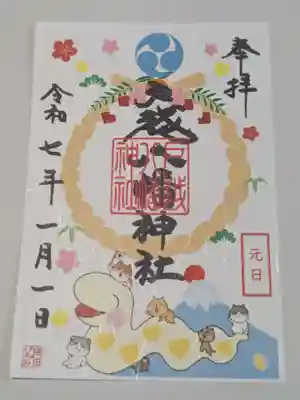 奉拝
戸越八幡神社
戸越八幡神社
元日
令和七年一月一日